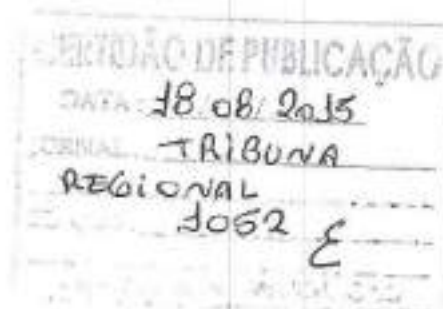 CERTIDÃO DE PUBLICAÇÃO
DATA: 18.08.2015
JORNAL TRIBUNA
REGIONAL
1052